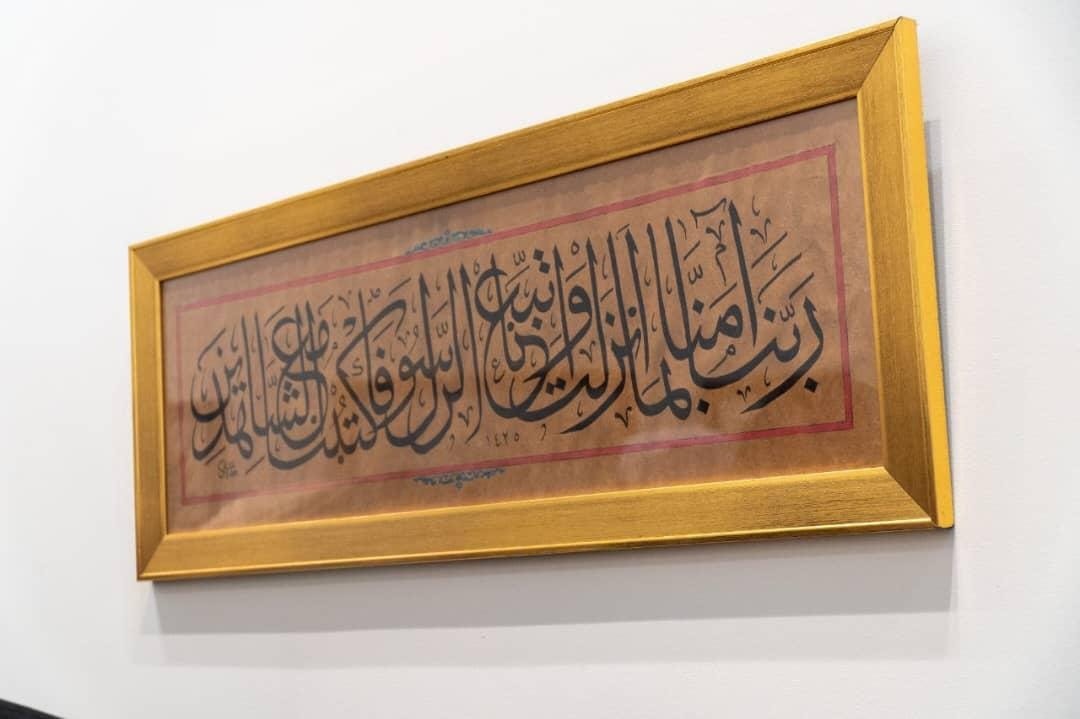 ربنا آمنا بما أنزلت واتبعنا الرسول فاكتبنا مع الشاهدين
١٤٢٥